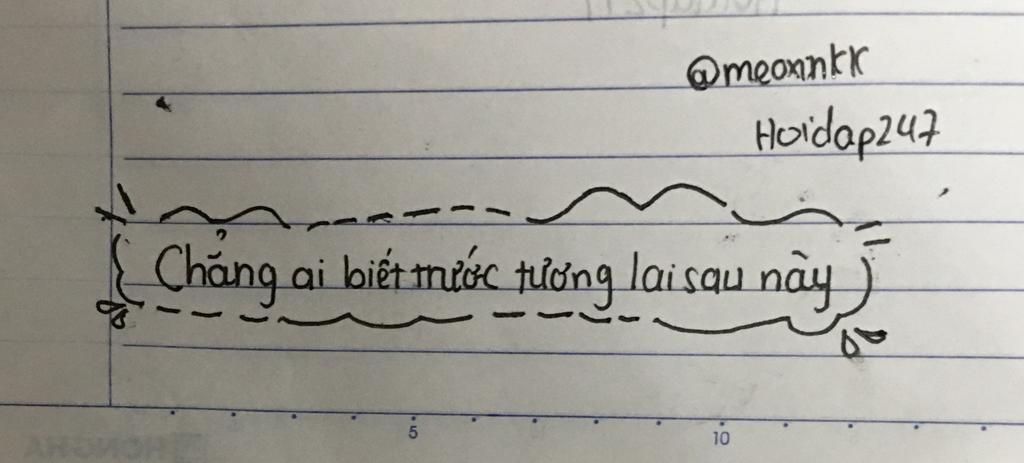 @meoxnkk
Hoidap247
Chẳng ai biết trước tương lai sau này
5 10